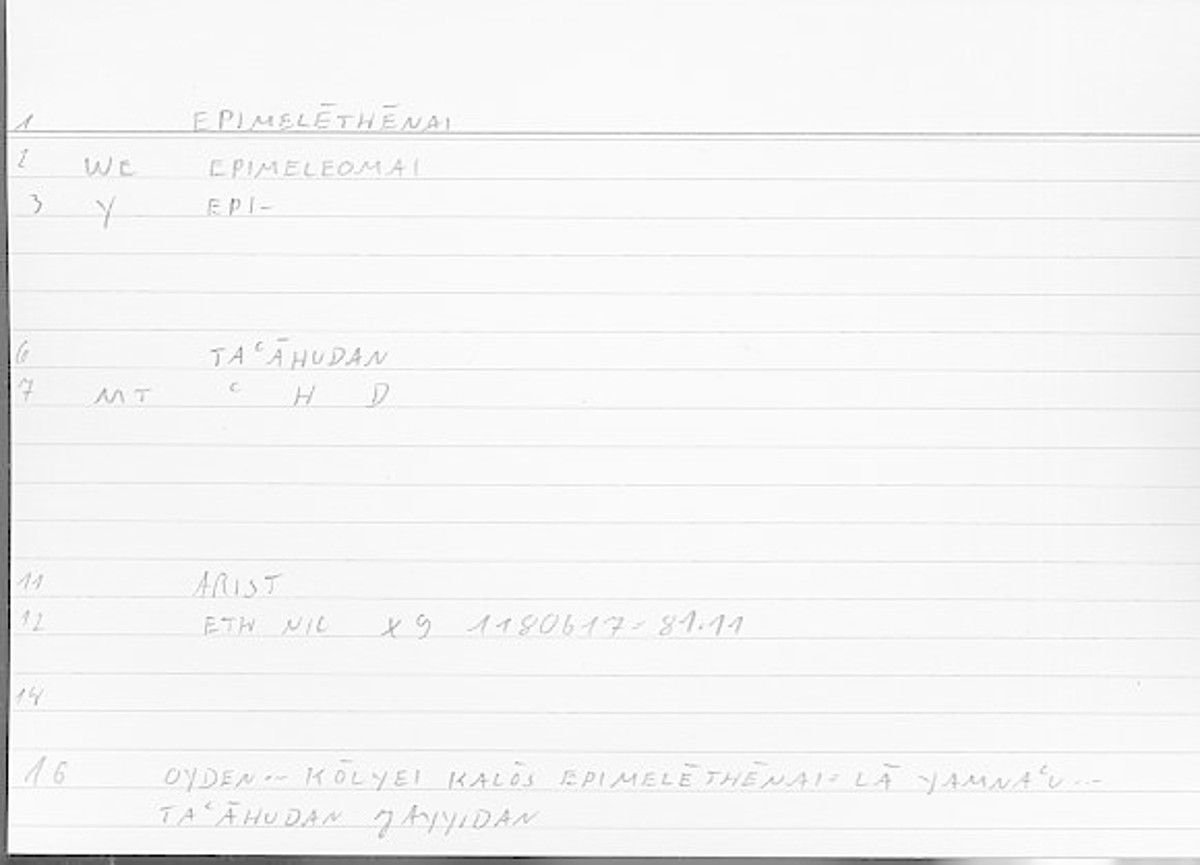 1 EPIMELĒTHĒNAI
2 WC EPIMELEOMAI
3 Y EPI-
6 TAʿĀHUDAN
7 MT ʿ H D
11 ARIST
12 ETH NIC X 9 1180b17=81.11
14
16 OYDEN-- KŌLYEI KALŌS EPIMELĒTHĒNAI= LĀ YAMNAʿU --
TAʿĀHUDAN ǦAYYIDAN